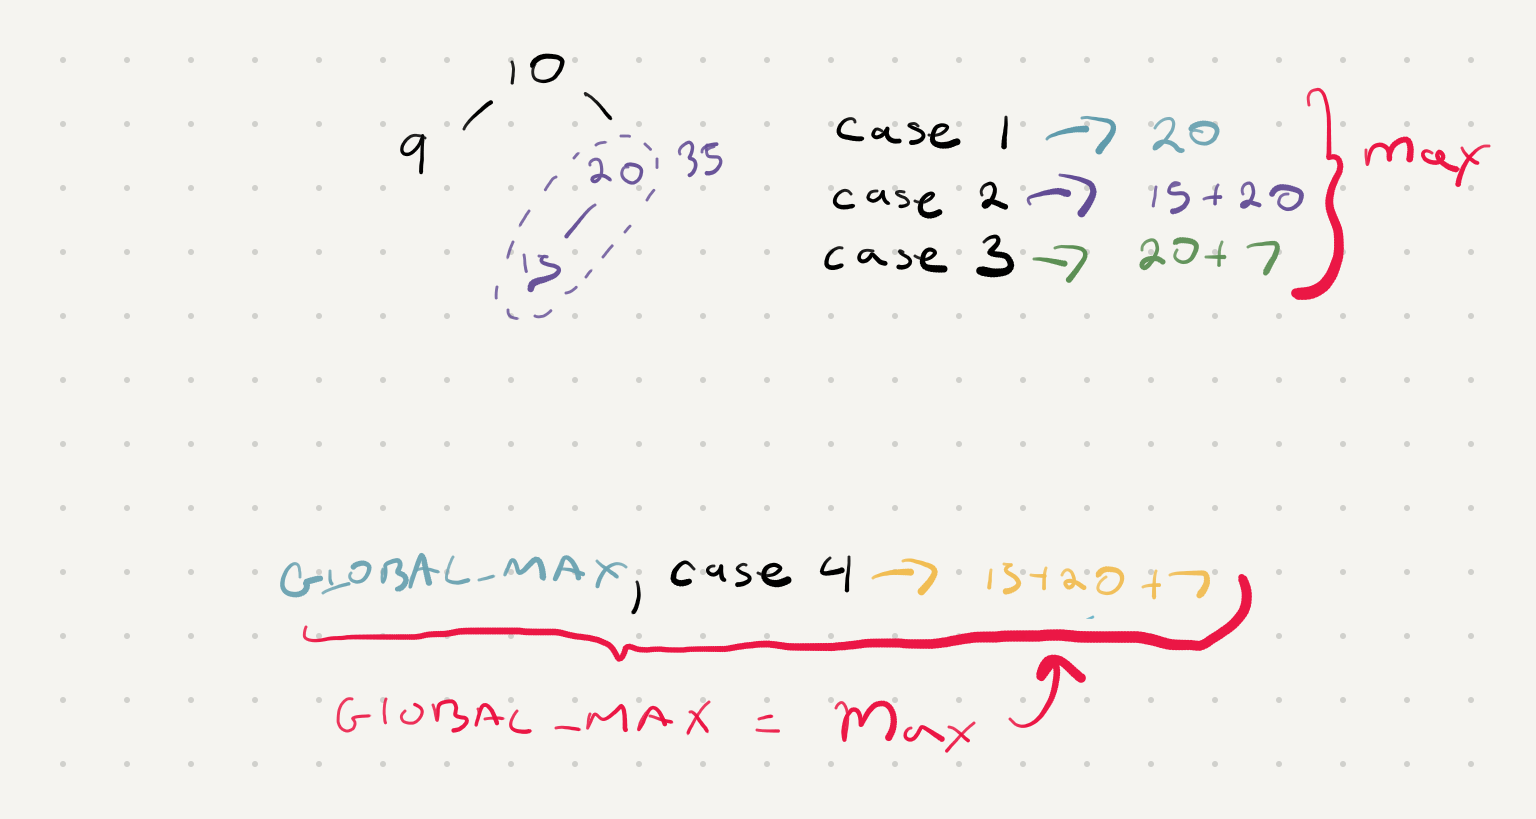 10
9
20 35
15
case 1 → 20
case 2 → 15+20
case 3 → 20+7
max
GLOBAL_MAX, case 4 → 15+20+7
GLOBAL_MAX = max